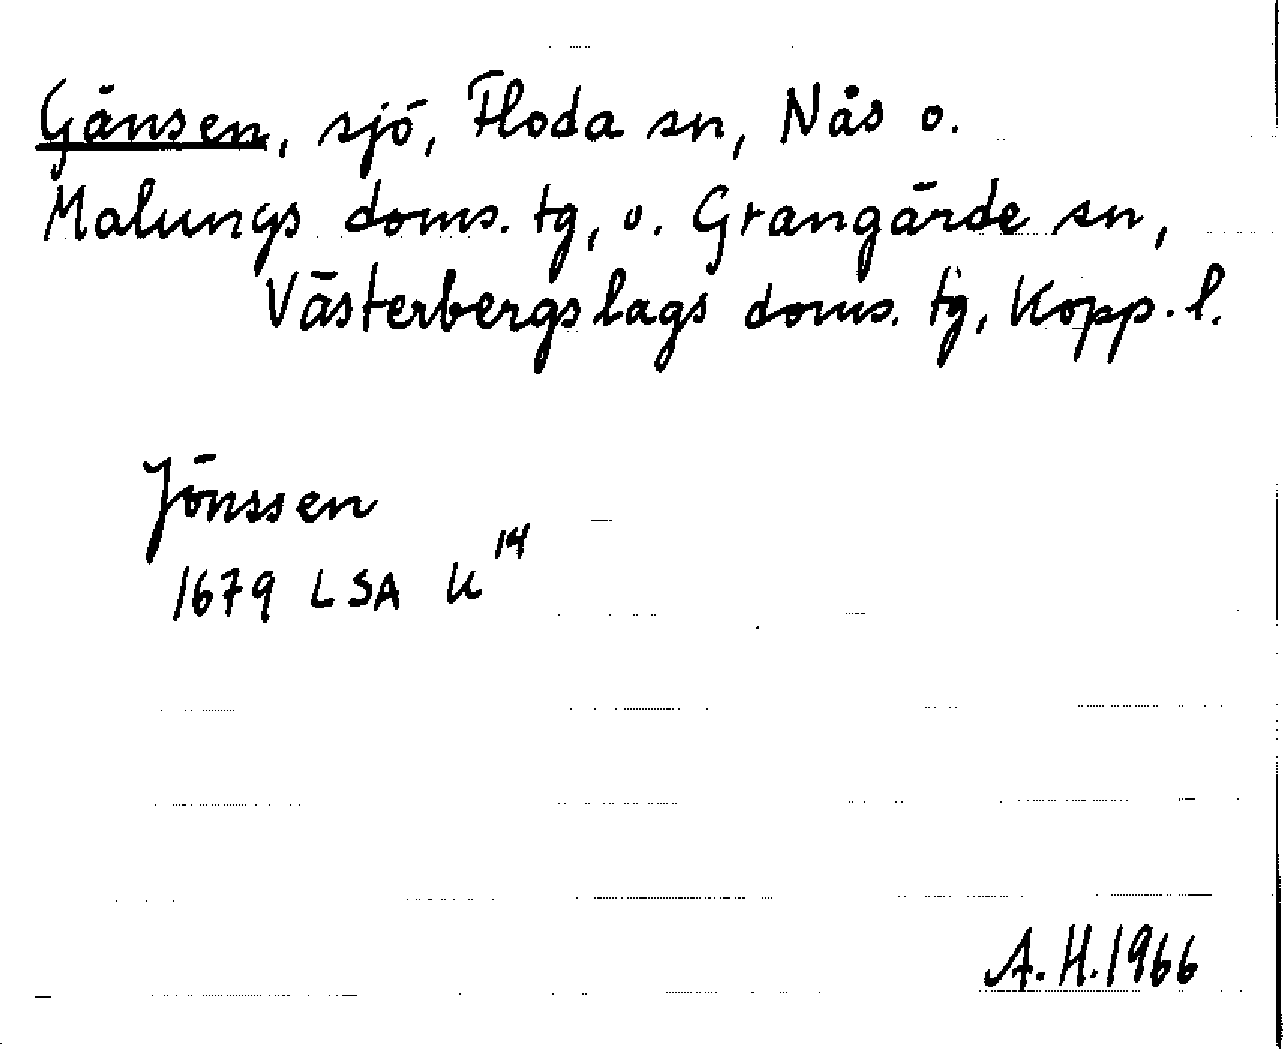 Gänsen, sjö, Floda sn, Nås o.
Malungs doms. tg, o. Grangärde sn,
Västerbergslags doms. tg, Kopp. l.
Jönssen
1679 LSA K 14
A. H. 1966